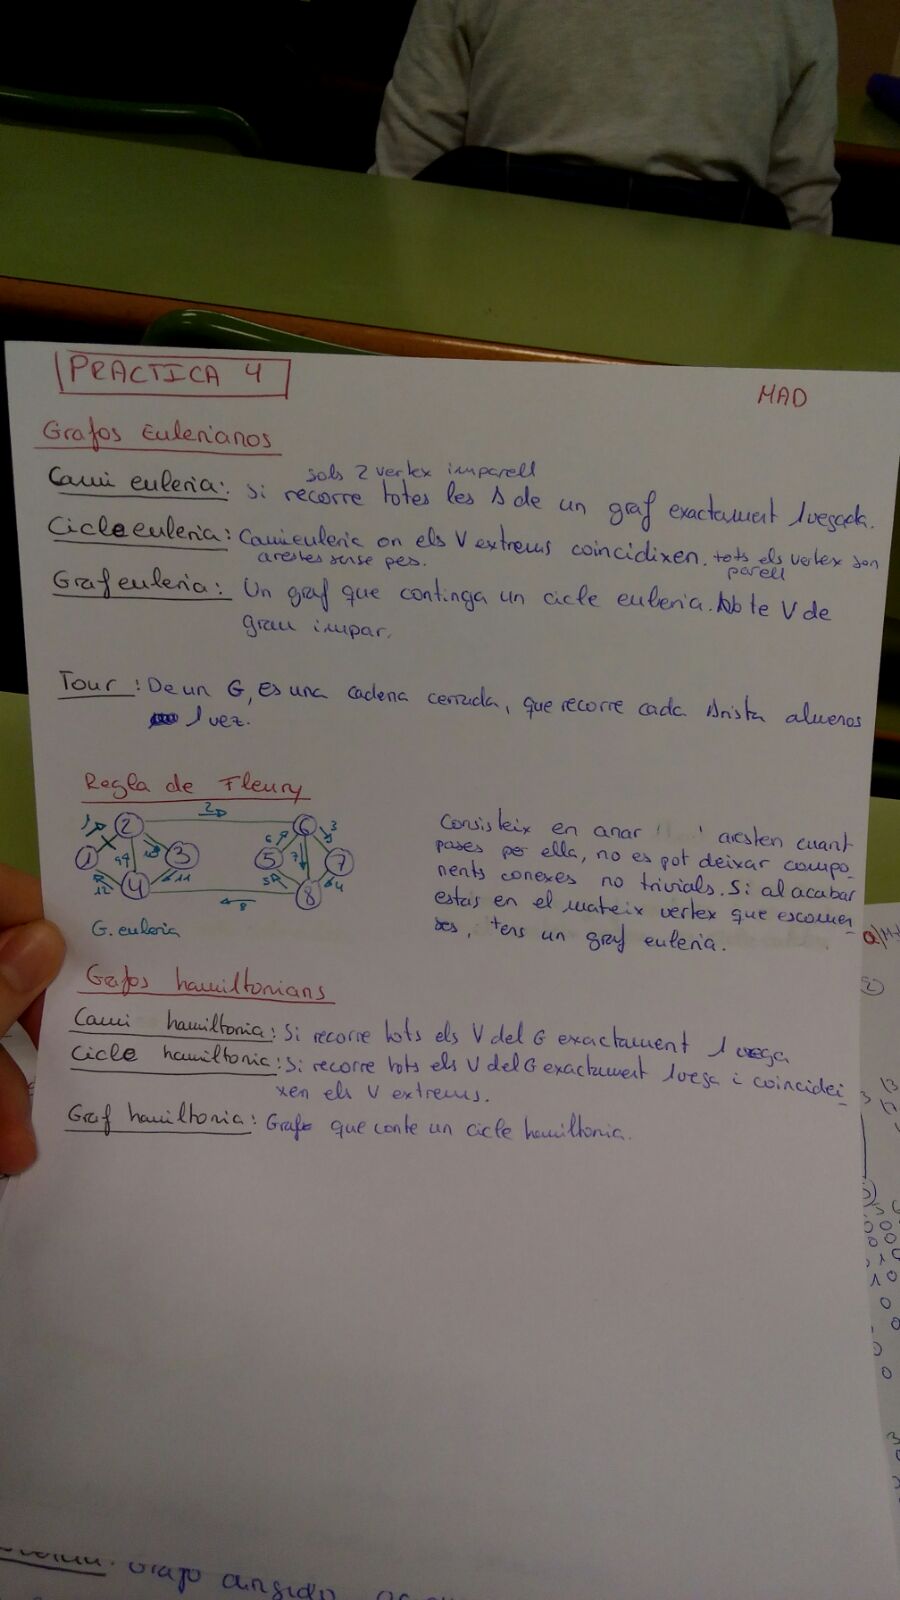 PRACTICA 4
MAD
Grafos Eulerianos
sols 2 vertex imparell
Cami euleria: Si recorre totes les A de un graf exactament 1 vegada.
Cicle euleria: Cami euleria on els V extrems coincidixen. tots els vertex son
arestes sense pes. parell
Graf euleria: Un graf que continga un cicle euleria. No te V de
grau impar.
Tour: De un G, es una cadena cerrada, que recorre cada Arista almenos
1 vez.
Regla de Fleury
1 2 2 6 3
1 9 10 3 5 6 7 7
12 4 11 5 8 4
8
G. euleria
Consisteix en anar aresten cuant
pases per ella, no es pot deixar compo-
nents conexes no trivials. Si al acabar
estas en el mateix vertex que escomen
ses, tens un graf euleria.
Grafos hamiltonians
Cami hamiltonia: Si recorre tots els V del G exactament 1 vega
Cicle hamiltonia: Si recorre tots els V del G exactament 1 vega i coincidei-
xen els V extrems.
Graf hamiltonia: Grafo que conte un cicle hamiltonia.
a)
2
grafo dirigido